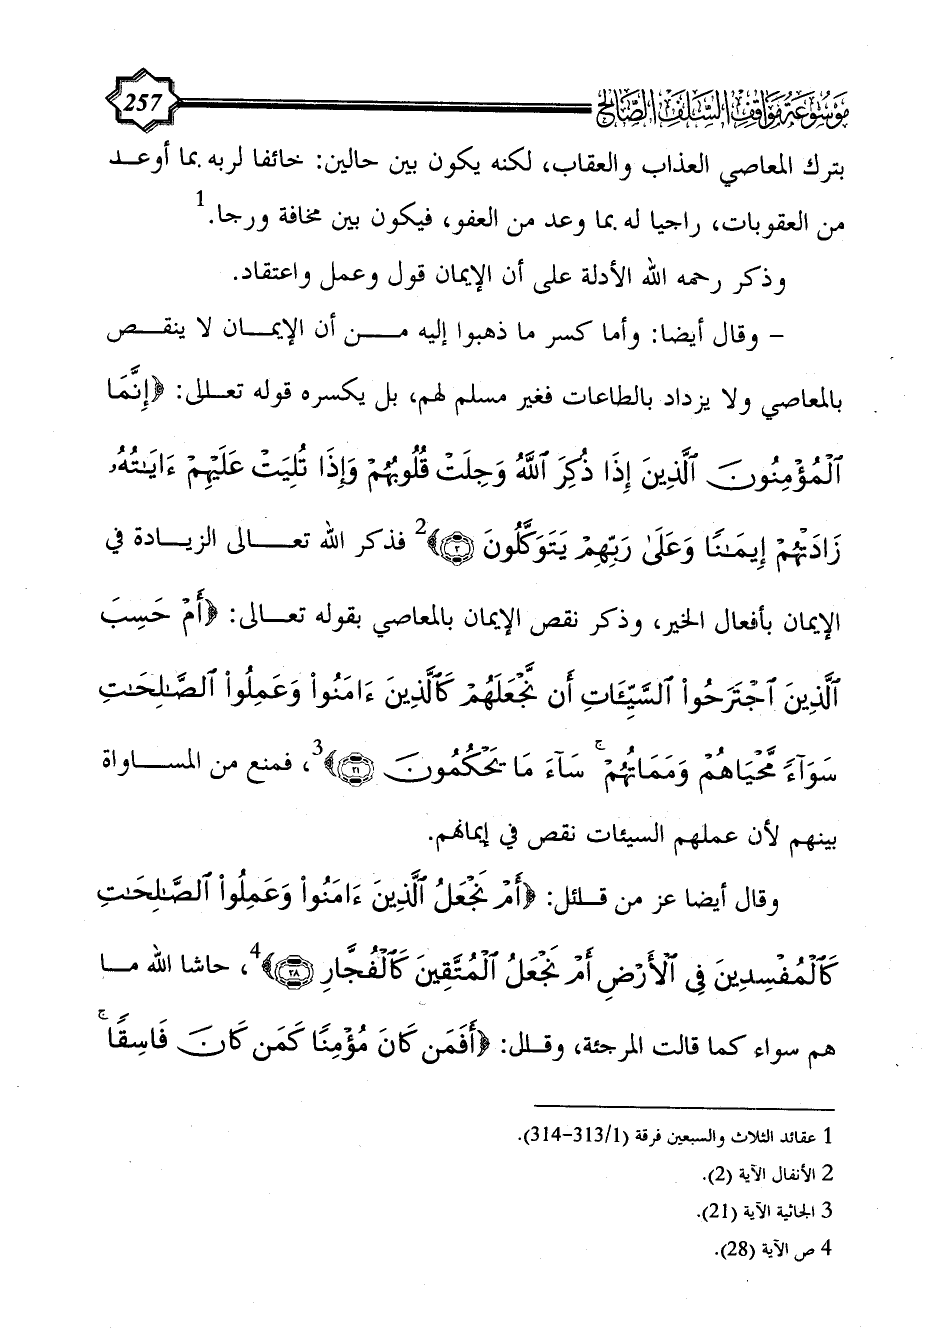 موسوعة مواقف السلف الصالح
257
بترك المعاصي العذاب والعقاب، لكنه يكون بين حالين: خائفا لربه بما أوعد
من العقوبات، راجيا له بما وعد من العفو، فيكون بين مخافة ورجا.1
وذكر رحمه الله الأدلة على أن الإيمان قول وعمل واعتقاد.
– وقال أيضا: وأما كسر ما ذهبوا إليه من أن الإيمان لا ينقص
بالمعاصي ولا يزداد بالطاعات فغير مسلم لهم، بل يكسره قوله تعالى: ﴿إِنَّمَا
ٱلْمُؤْمِنُونَ ٱلَّذِينَ إِذَا ذُكِرَ ٱللَّهُ وَجِلَتْ قُلُوبُهُمْ وَإِذَا تُلِيَتْ عَلَيْهِمْ ءَايَـٰتُهُۥ
زَادَتْهُمْ إِيمَـٰنًا وَعَلَىٰ رَبِّهِمْ يَتَوَكَّلُونَ ٢﴾2 فذكر الله تعالى الزيادة في
الإيمان بأفعال الخير، وذكر نقص الإيمان بالمعاصي بقوله تعالى: ﴿أَمْ حَسِبَ
ٱلَّذِينَ ٱجْتَرَحُوا۟ ٱلسَّيِّـَٔاتِ أَن نَّجْعَلَهُمْ كَٱلَّذِينَ ءَامَنُوا۟ وَعَمِلُوا۟ ٱلصَّـٰلِحَـٰتِ
سَوَآءً مَّحْيَاهُمْ وَمَمَاتُهُمْ ۚ سَآءَ مَا يَحْكُمُونَ ٢١﴾3، فمنع من المساواة
بينهم لأن عملهم السيئات نقص في إيمانهم.
وقال أيضا عز من قائل: ﴿أَمْ نَجْعَلُ ٱلَّذِينَ ءَامَنُوا۟ وَعَمِلُوا۟ ٱلصَّـٰلِحَـٰتِ
كَٱلْمُفْسِدِينَ فِى ٱلْأَرْضِ أَمْ نَجْعَلُ ٱلْمُتَّقِينَ كَٱلْفُجَّارِ ٢٨﴾4، حاشا الله ما
هم سواء كما قالت المرجئة، وقال: ﴿أَفَمَن كَانَ مُؤْمِنًا كَمَن كَانَ فَاسِقًا ۚ
1 عقائد الثلاث والسبعين فرقة (1/313-314).
2 الأنفال الآية (2).
3 الجاثية الآية (21).
4 ص الآية (28).